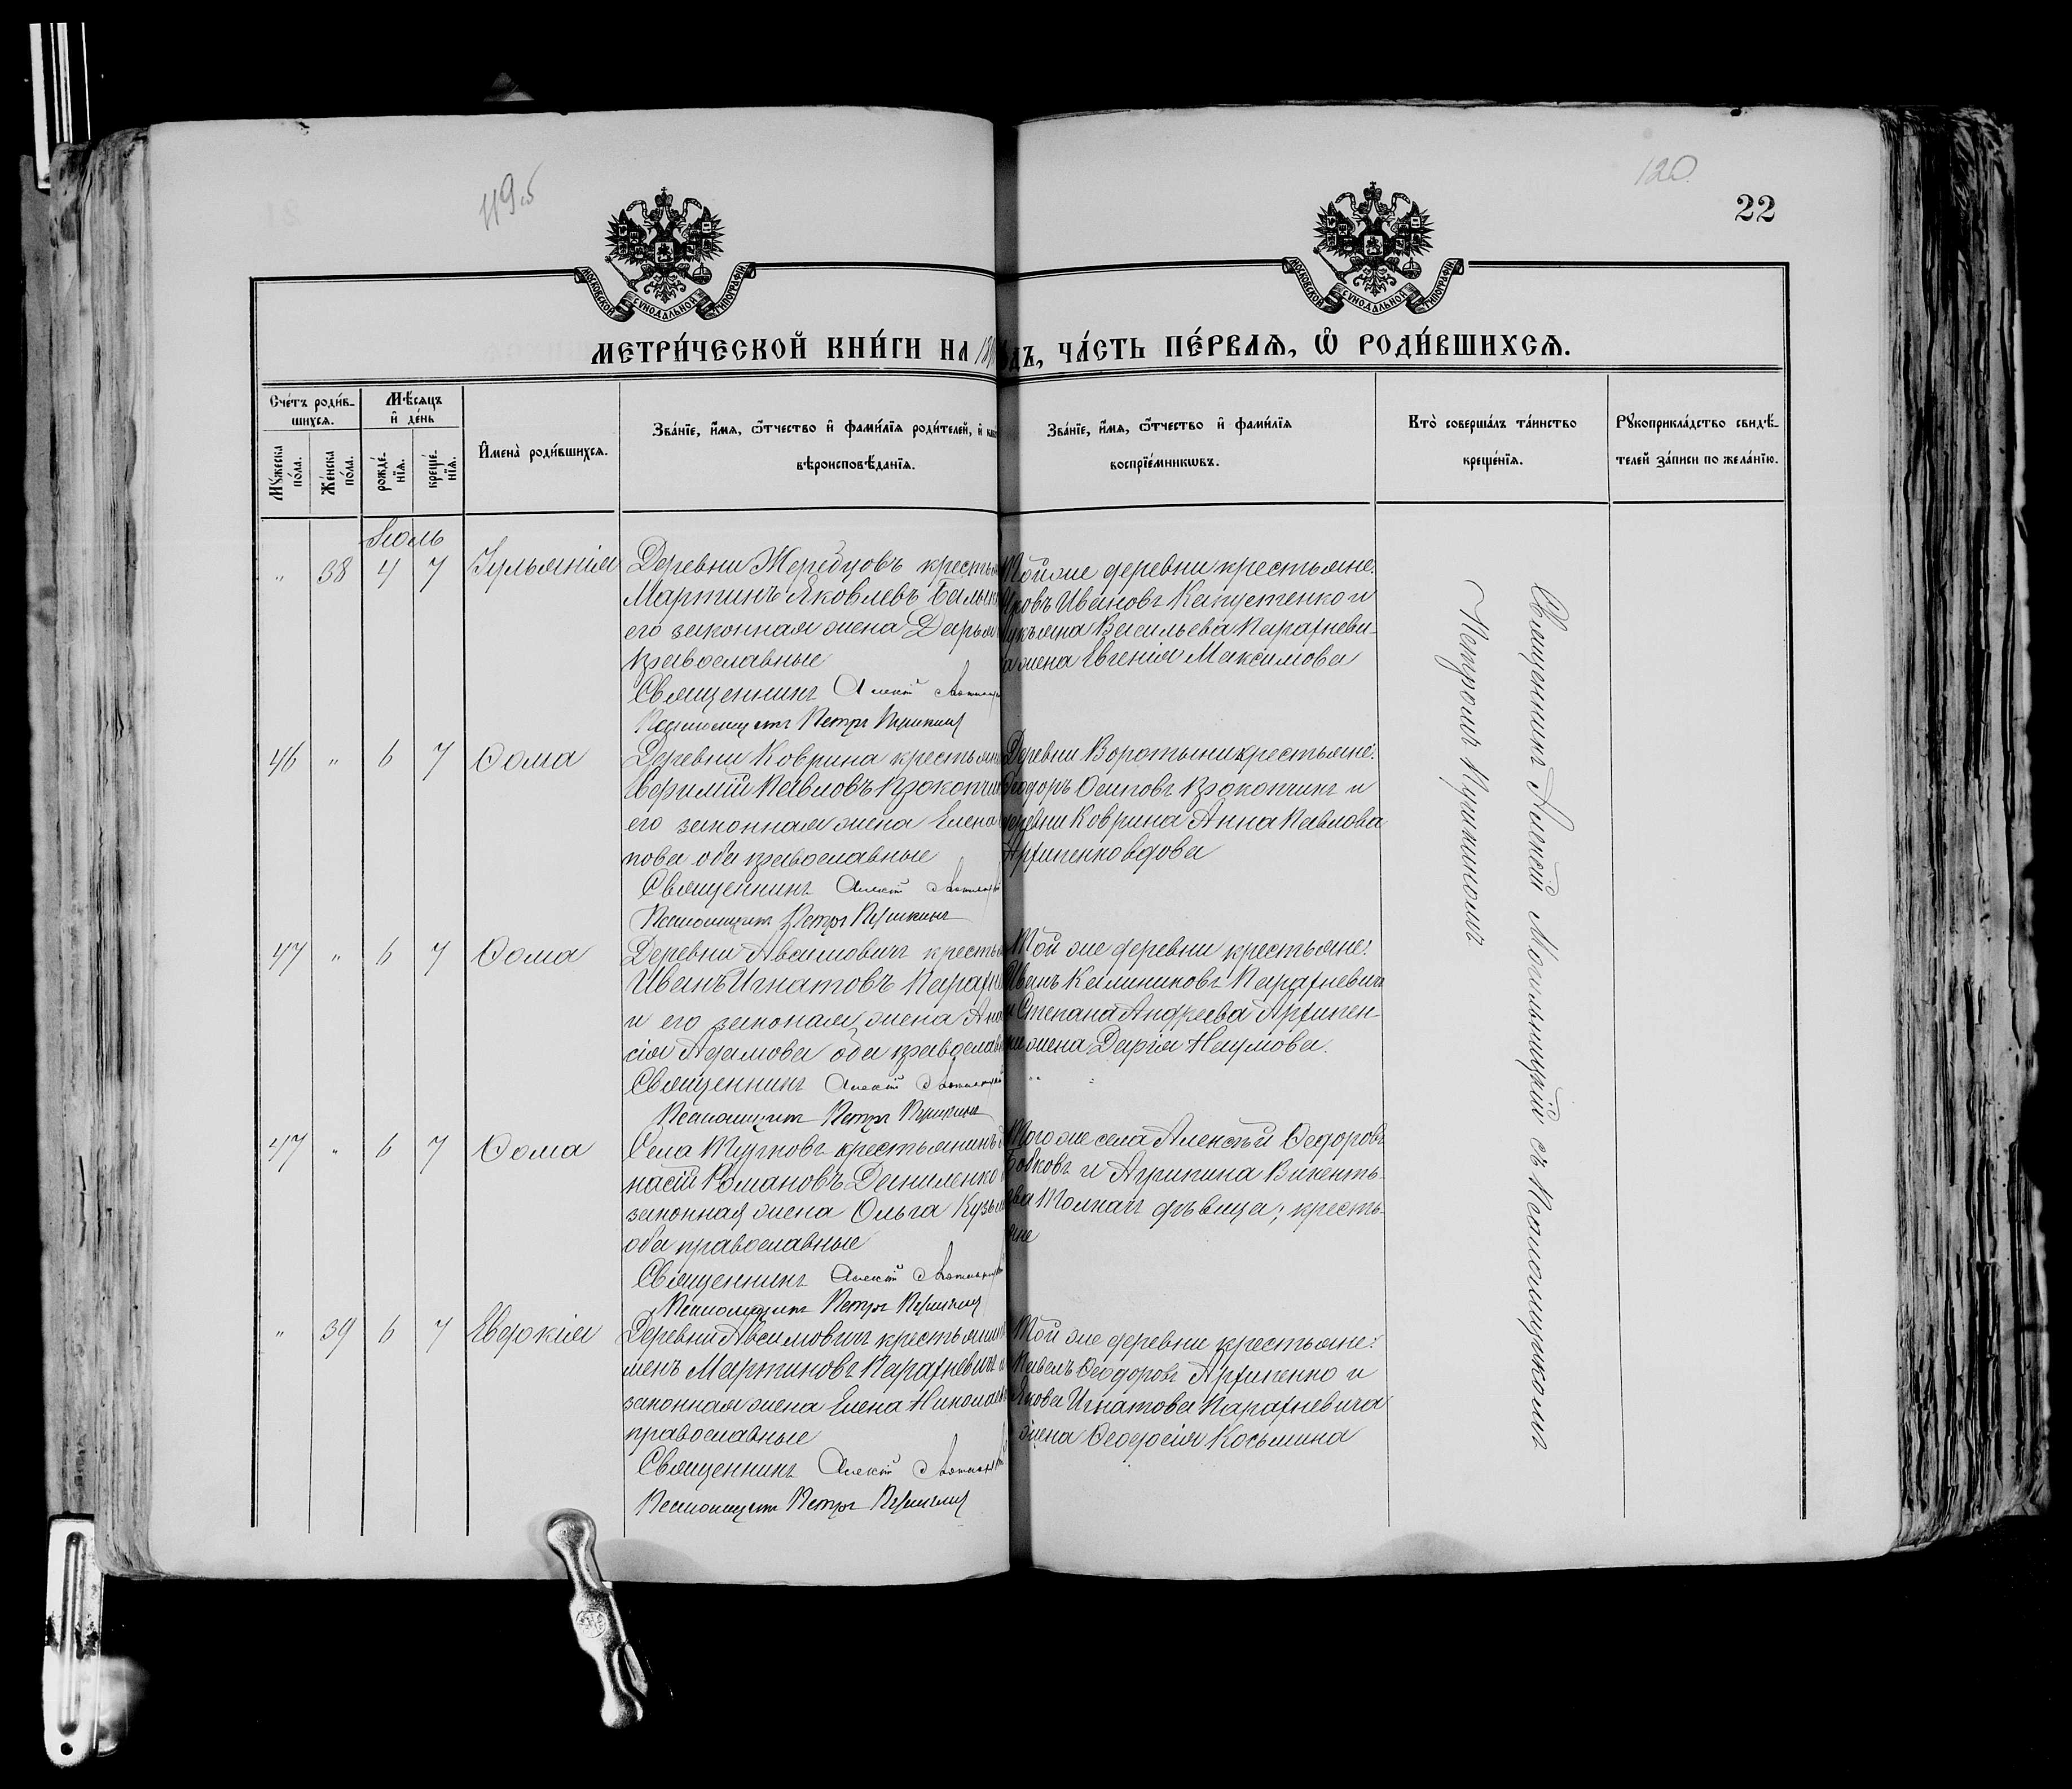 119об
120
22
МОСКОВСКОЙ СѴНОДАЛЬНОЙ ТИПОГРАФІИ
МОСКОВСКОЙ СѴНОДАЛЬНОЙ ТИПОГРАФІИ
МЕТРИ́ЧЕСКОЙ КНИ́ГИ НА
ОДЪ, ЧА́СТЬ ПЕ́РВАѦ, Ѡ҆ РОДИ́ВШИХСѦ.
Сче́тъ роди́в-
шихсѧ.
Мꙋ́жеска по́ла.
Же́нска по́ла.
Мѣ́сѧцъ
и҆ де́нь
рожде́-нїѧ.
креще́-нїѧ.
И҆мена̀ роди́вшихсѧ.
Зва́нїе, и҆́мѧ, ѻ҆́тчество и҆ фами́лїѧ роди́телей, и҆
вѣроисповѣ́данїѧ.
Зва́нїе, и҆́мѧ, ѻ҆́тчество и҆ фами́лїѧ
воспрїе́мникѡвъ.
Кто̀ соверша́лъ та́инство
креще́нїѧ.
Рꙋкоприкла́дство свидѣ́-
телей за́писи по жела́нїю.
Іюль
" 38 4 7 Іульянія
Деревни Жеребцовъ кресть
Мартинъ Яковлевъ
его законная жена Дарья
православные
Священникъ Алексій
Псаломщикъ Петръ Пушкинъ
Той же деревни крестьяне:
Ивановъ Капустенко и
Лукьяна Васильева Парахневи-
а жена Евгенія Максимова
46 " 6 7 Ѳома
Деревни Коврина крестьян
Евфимій Павловъ Прокопчи
его законная жена Елена
пова оба православные
Священникъ Алексій
Псаломщикъ Петръ Пушкинъ
Деревни Воротыни крестьяне:
Ѳеодоръ Осиповъ Прокопчикъ и
деревни Коврина Анна Павлова
Архипенко вдова
47 " 6 7 Ѳома
Деревни Авсимовичъ кресть
Иванъ Игнатовъ Парахне
и его законная жена Ана
сія Адамова оба православ
Священникъ Алексій
Псаломщикъ Петръ Пушкинъ
Той же деревни крестьяне:
Иванъ Калиниковъ Парахневичъ
и Степана Андреева Архипен-
ки жена Дарія Наумова.
47 " 6 7 Ѳома
Села Турковъ крестьянинъ
насій Романовъ Даниленко
законная жена Ольга Кузьм
оба православные
Священникъ Алексій
Псаломщикъ Петръ Пушкинъ
Того же села Алексѣй Ѳедоровъ
Бобковъ и Агрипина Викенть-
ева Толкачъ дѣвица; кресть-
яне
" 39 6 7 Евдокія
Деревни Авсимовичъ крестьянин
менъ Мартиновъ Парахневичъ и
законная жена Елена Николае
православные
Священникъ Алексій
Псаломщикъ Петръ Пушкинъ
Той же деревни крестьяне:
Павелъ Ѳеодоровъ Архипенко и
Якова Игнатова Парахневича
жена Ѳеодосія Косьмина
Священникъ Алексій Могильницкій съ Псаломщикомъ
Петромъ Пушкиномъ